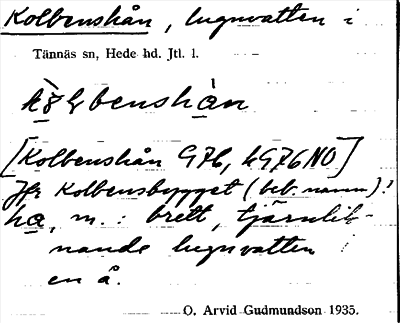 Kolbenshån, lugnvatten i
Tännäs sn, Hede hd. Jtl. l.
benshàn
[Kolbenshån G76, hG76NO]
Jfr Kolbensbygget (beb.namn)!
ha, m.: brett, tjärnlik-
nande lugnvatten i
en å.
O. Arvid Gudmundson 1935.